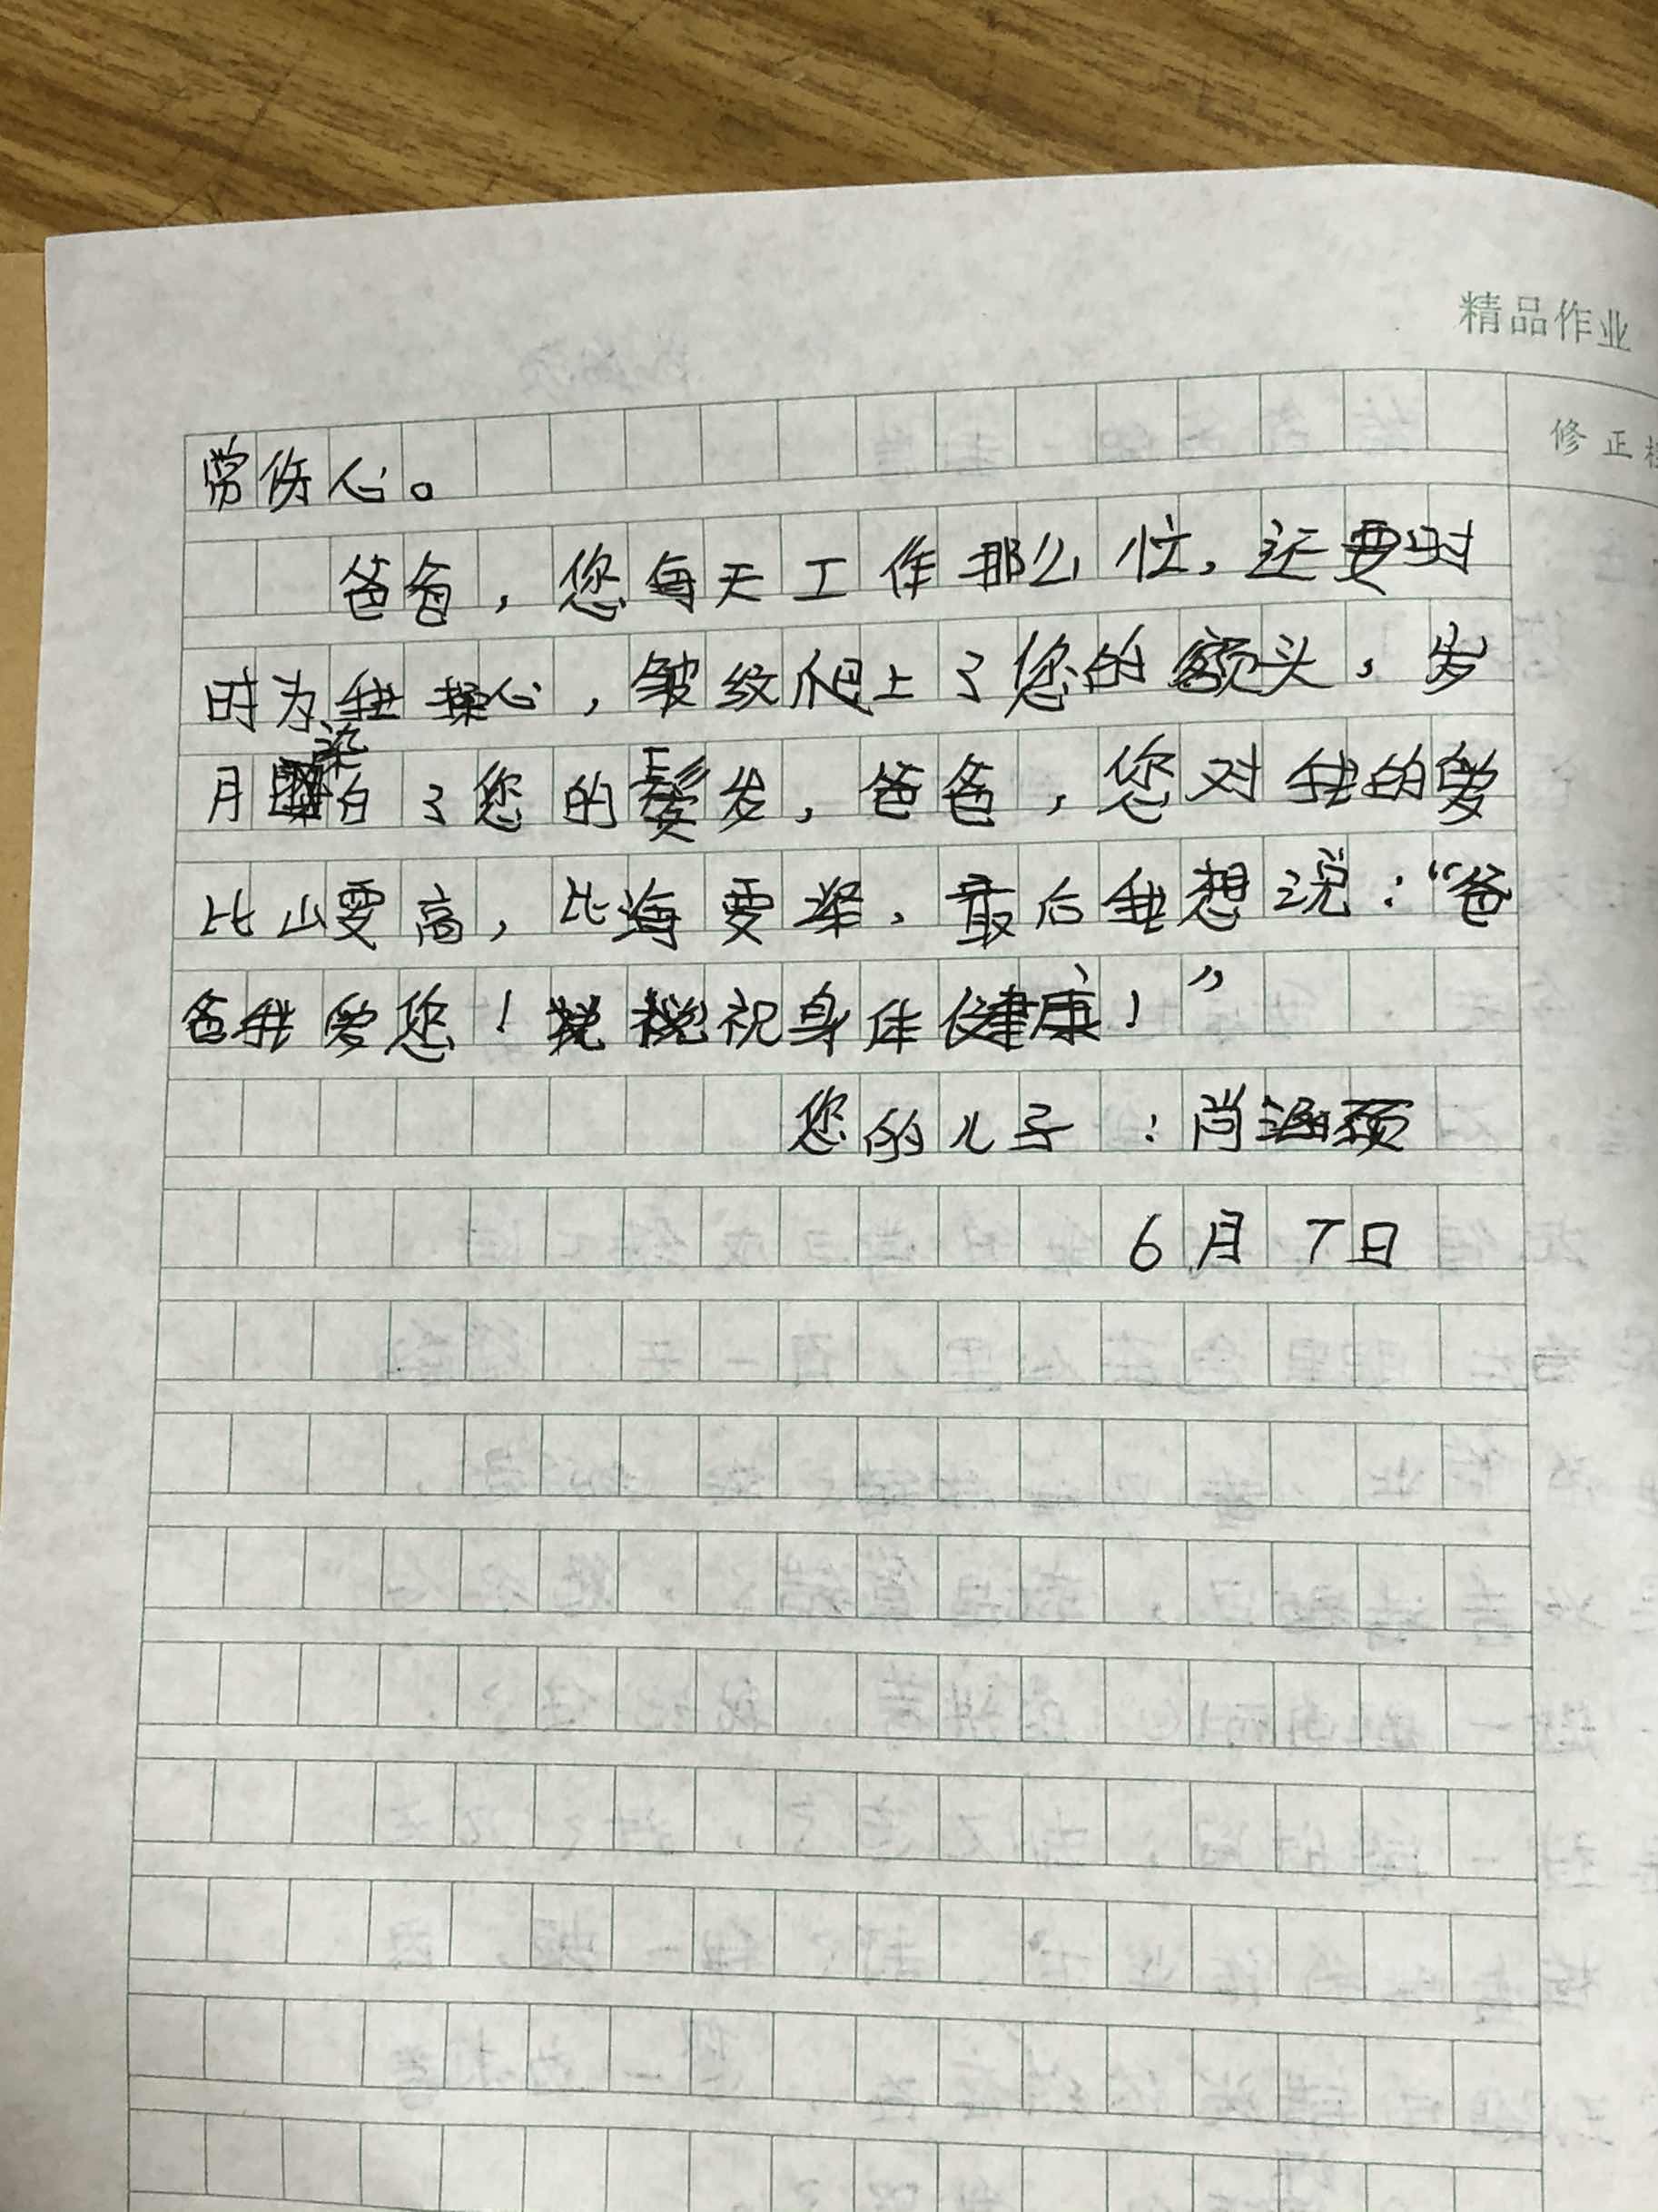 精品作业
修正
常伤心。
爸爸，您每天工作那么忙，还要时
时为我操心，皱纹爬上了您的额头，岁
月染白了您的鬓发，爸爸，您对我的爱
比山要高，比海要深，最后我想说：“爸
爸我爱您！祝身体健康！”
您的儿子：肖涵颈
6月7日